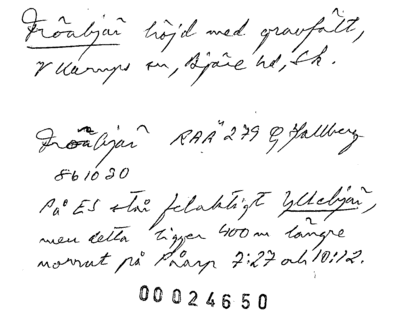 Fröabjär höjd med gravfält,
V Karups sn, Bjäre hd, Sk.
Fröabjär RAÄ 279 G Hallberg
861030
På ES står felaktigt Yllebjär,
men detta ligger 400 m längre
norrut på Påarp 7:27 och 10:12.
00024650